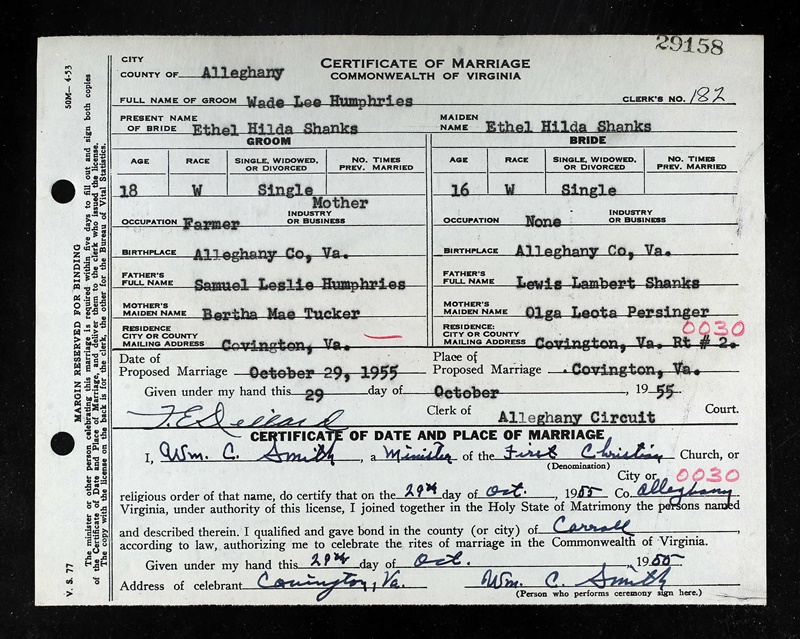 29158
CITY
COUNTY OF Alleghany
CERTIFICATE OF MARRIAGE
COMMONWEALTH OF VIRGINIA
FULL NAME OF GROOM Wade Lee Humphries CLERK'S NO. 182
PRESENT NAME OF BRIDE Ethel Hilda Shanks MAIDEN NAME Ethel Hilda Shanks
GROOM BRIDE
AGE RACE SINGLE, WIDOWED, OR DIVORCED NO. TIMES PREV. MARRIED AGE RACE SINGLE, WIDOWED, OR DIVORCED NO. TIMES PREV. MARRIED
18 W Single 16 W Single
Mother
OCCUPATION Farmer INDUSTRY OR BUSINESS OCCUPATION None INDUSTRY OR BUSINESS
BIRTHPLACE Alleghany Co, Va. BIRTHPLACE Alleghany Co, Va.
FATHER'S FULL NAME Samuel Leslie Humphries FATHER'S FULL NAME Lewis Lambert Shanks
MOTHER'S MAIDEN NAME Bertha Mae Tucker MOTHER'S MAIDEN NAME Olga Leota Persinger
0030
RESIDENCE CITY OR COUNTY MAILING ADDRESS Covington, Va. RESIDENCE: CITY OR COUNTY MAILING ADDRESS Covington, Va. Rt # 2.
Date of Proposed Marriage October 29, 1955 Place of Proposed Marriage Covington, Va.
Given under my hand this 29 day of October, 1955
F. E. Dillard Clerk of Alleghany Circuit Court.
CERTIFICATE OF DATE AND PLACE OF MARRIAGE
I, Wm. C. Smith, a Minister of the First Christian Church, or
(Denomination)
City or 0030
religious order of that name, do certify that on the 29th day of Oct., 1955 Co. Alleghany
Virginia, under authority of this license, I joined together in the Holy State of Matrimony the persons named
and described therein. I qualified and gave bond in the county (or city) of Carroll,
according to law, authorizing me to celebrate the rites of marriage in the Commonwealth of Virginia.
Given under my hand this 29th day of Oct. 1955
Address of celebrant Covington, Va. Wm. C. Smith
(Person who performs ceremony sign here.)
50M—4-53
V. S. 77
MARGIN RESERVED FOR BINDING
The minister or other person celebrating this marriage is required within five days to fill out and sign both copies
of the Certificate of Date and Place of Marriage, and deliver them to the clerk who issued the license.
The copy with the license on the back is for the clerk, the other for the Bureau of Vital Statistics.